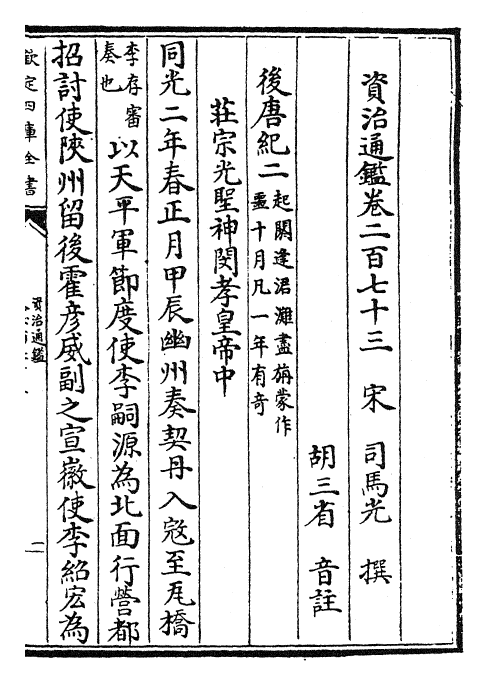 資治通鑑卷二百七十三 宋 司馬光 撰
胡三省 音註
後唐紀二 起閼逢涒灘盡旃蒙作
噩十月凡一年有奇
莊宗光聖神閔孝皇帝中
同光二年春正月甲辰幽州奏契丹入寇至瓦橋
李存審
奏也 以天平軍節度使李嗣源為北面行營都
招討使陝州留後霍彥威副之宣徽使李紹宏為
欽定四庫全書
資治通鑑
二